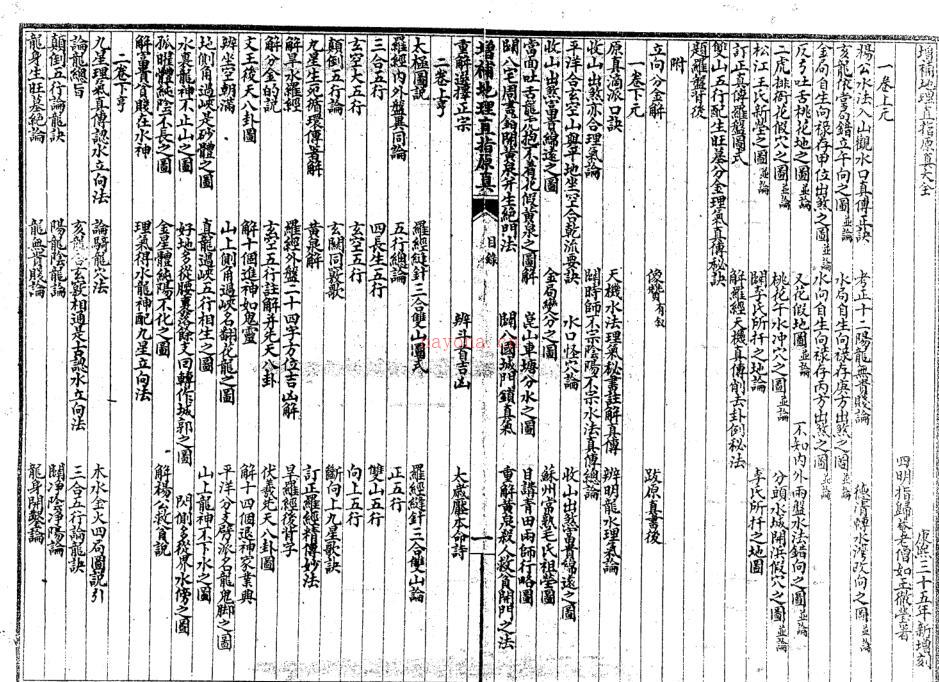 增補地理直指原真大全
康熙三十五年新增刻
一卷上元
四明指歸菴老僧如玉徹瑩著
楊公水法入山觀水口真傳正訣
考正十二陽龍無貴賤論
亥龍依富局錯立午向之圖並論
水局自生向祿存庚方出煞之圖並論
金局自生向祿存甲位出煞之圖並論
水向自生向祿存丙方出煞之圖並論
反弓吐舌桃花地之圖並論
又花假地圖並論
不知內外兩盤水法錯向之圖並論
二虎排衙花假穴之圖並論
桃花千水冲穴之圖並論
分頭水城開浜假穴之圖並論
松江王氏新塋之圖並論
闢李氏所扦之地論
李氏所扦之地圖
訂正真傳羅盤圖式
解羅經天機真傳削去卦例秘法
雙山五行配生旺墓分金理氣真傳秘訣
題羅盤背後
附
立向分金解
儆瞽有敘
跋原真書後
一卷下元
原真滴派口訣
天機水法理氣秘書註解真傳
辨明龍水理氣論
收山出煞亦合理氣論
闢時師不宗陰陽不宗水法真傳總論
平洋合玄空山與平地坐空合乾流要訣
水口怪穴論
收山出煞富貴綿遠之圖
收山出煞富貴綿遠之圖
金局變分之圖
蘇州常熟毛氏祖塋圖
當面吐舌龍虎不抱不着花假黃泉之圖解
崑山車塘分水之圖
目講青田兩師行略圖
闢八宅周書鈐開黃泉并生絕門法
闢八國城門鎖真氣
重解黃泉殺人救貧開門之法
增補地理直指原真
目錄
一
重解選擇正宗
辨斗首吉凶
太歲壓本命詩
二卷上亨
太極圖說
羅經縫針三合雙山圖式
羅經縫針三合雙山論
羅經內外盤異同論
五行總論
正五行
三合五行
四長生五行
雙山五行
玄空大五行
玄空五行
向上五行
顛倒五行論
玄關同竅歌
斷向上九星歌訣
九星生死循環傳書解
黃泉解
訂正羅經精傳妙法
解旱水羅經
羅經外盤二十四字方位吉凶解
旱羅經後背字
解分金的說
玄空五行註解并先天八卦
伏羲先天八卦圖
文王後天八卦圖
解十個進神如鬼靈
解十四個退神家業典
辨坐空朝滿
山上側角過峽名翻花龍之圖
平洋分支劈派名龍鬼脚之圖
地側角過峽是砂體之圖
真龍過峽五行相生之圖
山上龍神不下水之圖
水裏龍神不上山之圖
好地多從腰裏落餘支回轉作城郭之圖
閃側多從界水傍之圖
孤陽體純陰不長之圖
金星體純陽不化之圖
解楊公救貧說
解富貴貧賤在水神
理氣得水龍神配九星立向法
二卷下亨
九星理氣真傳認水立向法
論騎龍穴法
木水金火四局圖說引
論龍總旨
亥龍合玄竅相通是古認水立向法
三合五行論龍訣
顛倒五行論龍訣
陽龍陰龍論
闢淨陰淨陽論
龍身生旺墓絕論
龍無貴賤論
龍身開鑿論
nayona.cn